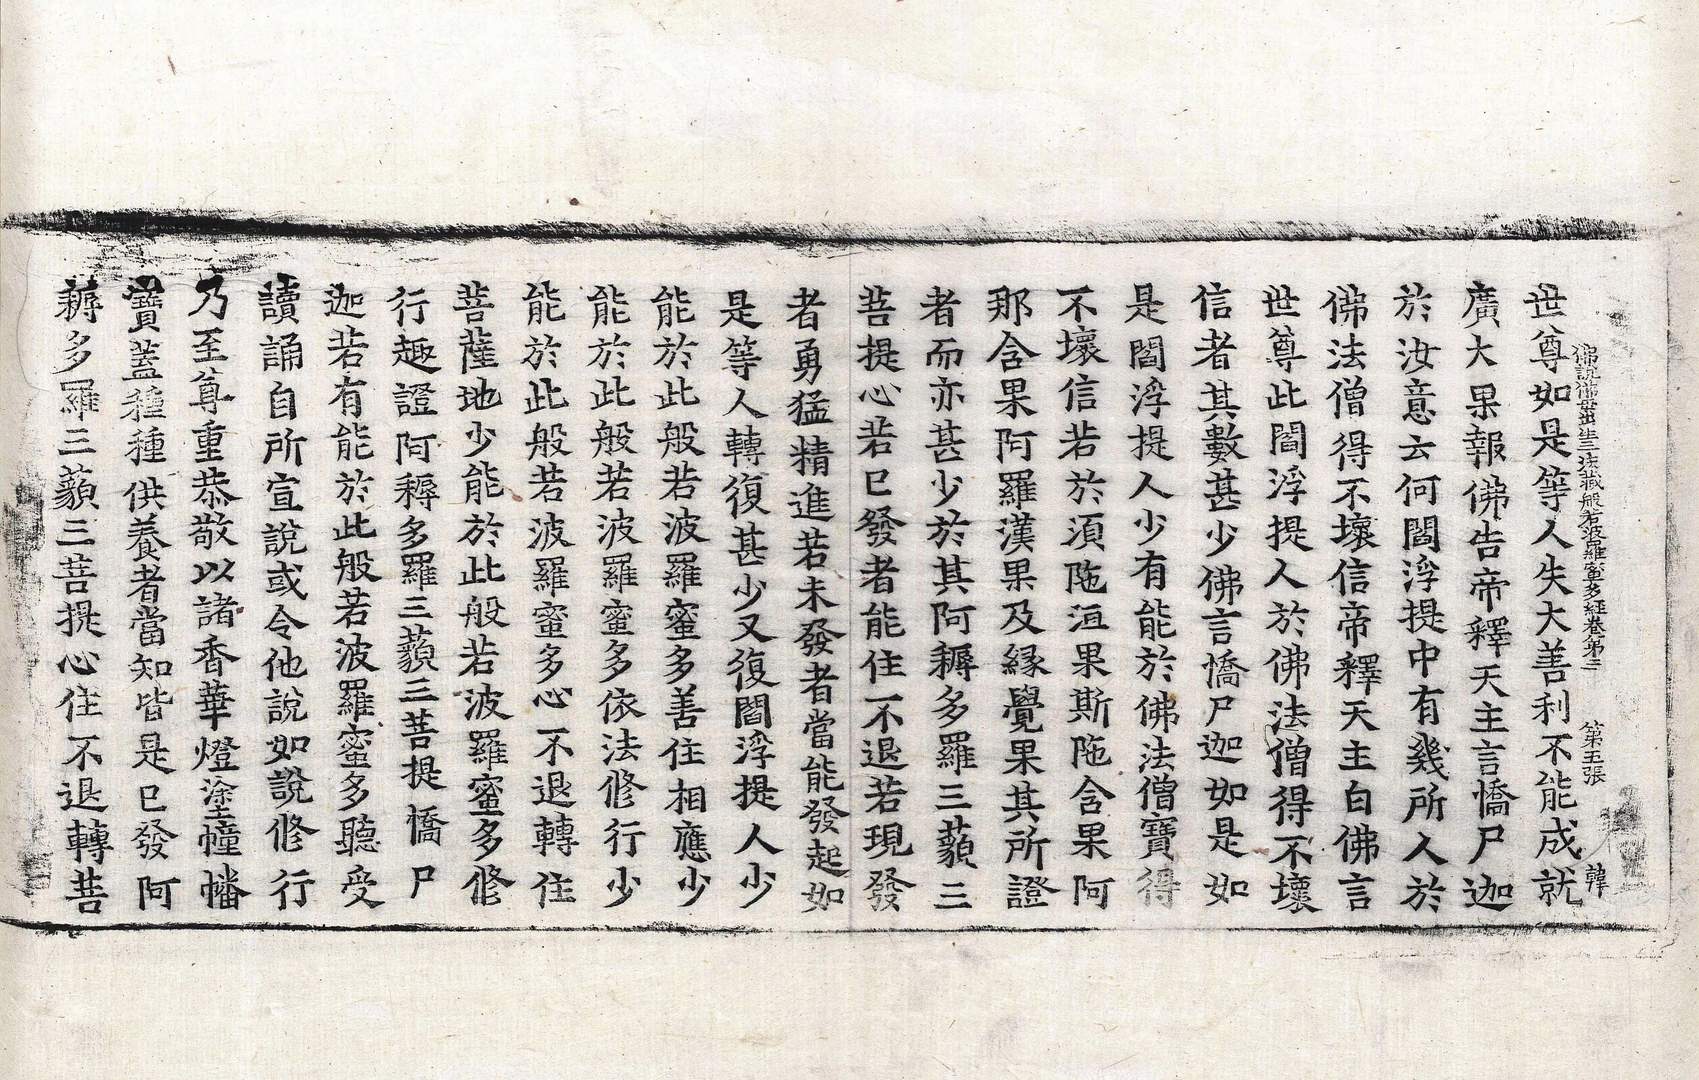 佛說佛母出生三法藏般若波羅蜜多經卷第三 第五張 韓
世尊如是等人失大善利不能成就
廣大果報佛告帝釋天主言憍尸迦
於汝意云何閻浮提中有幾所人於
佛法僧得不壞信帝釋天主白佛言
世尊此閻浮提人於佛法僧得不壞
信者其數甚少佛言憍尸迦如是如
是閻浮提人少有能於佛法僧寶得
不壞信若於須陁洹果斯陁含果阿
那含果阿羅漢果及緣覺果其所證
者而亦甚少於其阿耨多羅三藐三
菩提心若已發者能住不退若現發
者勇猛精進若未發者當能發起如
是等人轉復甚少又復閻浮提人少
能於此般若波羅蜜多善住相應少
能於此般若波羅蜜多依法修行少
能於此般若波羅蜜多心不退轉住
菩薩地少能於此般若波羅蜜多修
行趣證阿耨多羅三藐三菩提憍尸
迦若有能於此般若波羅蜜多聽受
讀誦自所宣說或令他說如說修行
乃至尊重恭敬以諸香華燈塗幢幡
寶蓋種種供養者當知皆是已發阿
耨多羅三藐三菩提心住不退轉菩